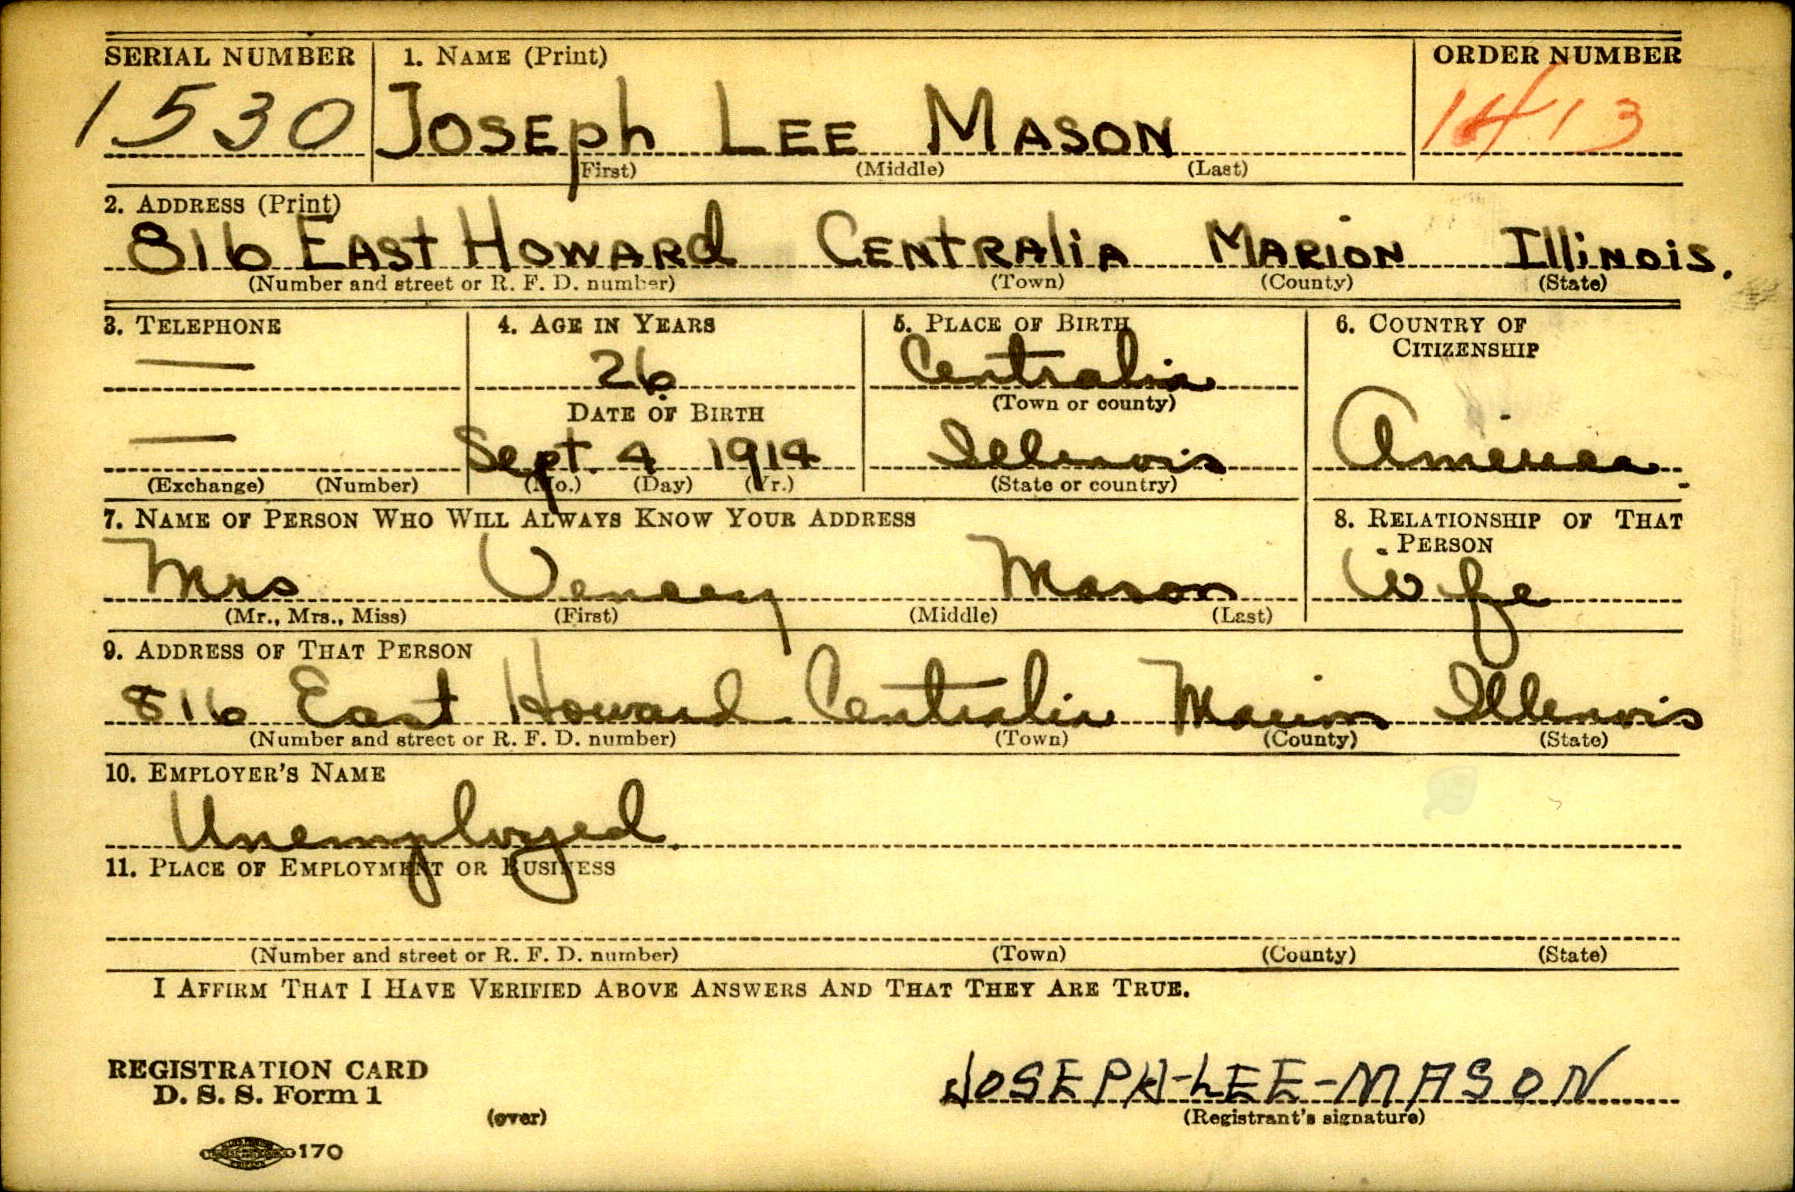 SERIAL NUMBER 1. NAME (Print) ORDER NUMBER
1530 JOSEPh LEE MASON 1413
(First) (Middle) (Last)
2. ADDRESS (Print)
816 EAST HOWARd CENTRAliA MARION IlliNOiS.
(Number and street or R. F. D. number) (Town) (County) (State)
3. TELEPHONE 4. AGE IN YEARS 5. PLACE OF BIRTH 6. COUNTRY OF CITIZENSHIP
— 26 Centralia
DATE OF BIRTH (Town or county)
— Sept. 4 1914 Illinois America
(Exchange) (Number) (Mo.) (Day) (Yr.) (State or country)
7. NAME OF PERSON WHO WILL ALWAYS KNOW YOUR ADDRESS 8. RELATIONSHIP OF THAT PERSON
Mrs Mason Wife
(Mr., Mrs., Miss) (First) (Middle) (Last)
9. ADDRESS OF THAT PERSON
816 East Howard Centralia Marion Illinois
(Number and street or R. F. D. number) (Town) (County) (State)
10. EMPLOYER'S NAME
Unemployed.
11. PLACE OF EMPLOYMENT OR BUSINESS
(Number and street or R. F. D. number) (Town) (County) (State)
I AFFIRM THAT I HAVE VERIFIED ABOVE ANSWERS AND THAT THEY ARE TRUE.
REGISTRATION CARD
D. S. S. Form 1
JOSEPH-LEE-MASON
(over) (Registrant's signature)
170